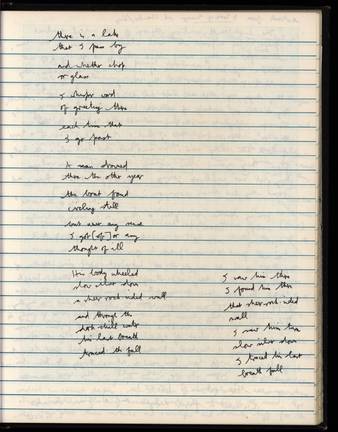 there is a lake
that I pass by
and whether chop
or glass
I whisper word
of greeting there
each time that
I go past
A man drowned
there the other year
the boat found
circling still
but never any
I got [of] or any
thought of all
His body wheeled
slow silver down
a sheer rock-sided wall
and through the
dark still water
his last breath
traced the fall
I saw him there
I found him there
that sheer rock-sided
wall
I saw him turn
slow silver down
I traced his last
breath fall